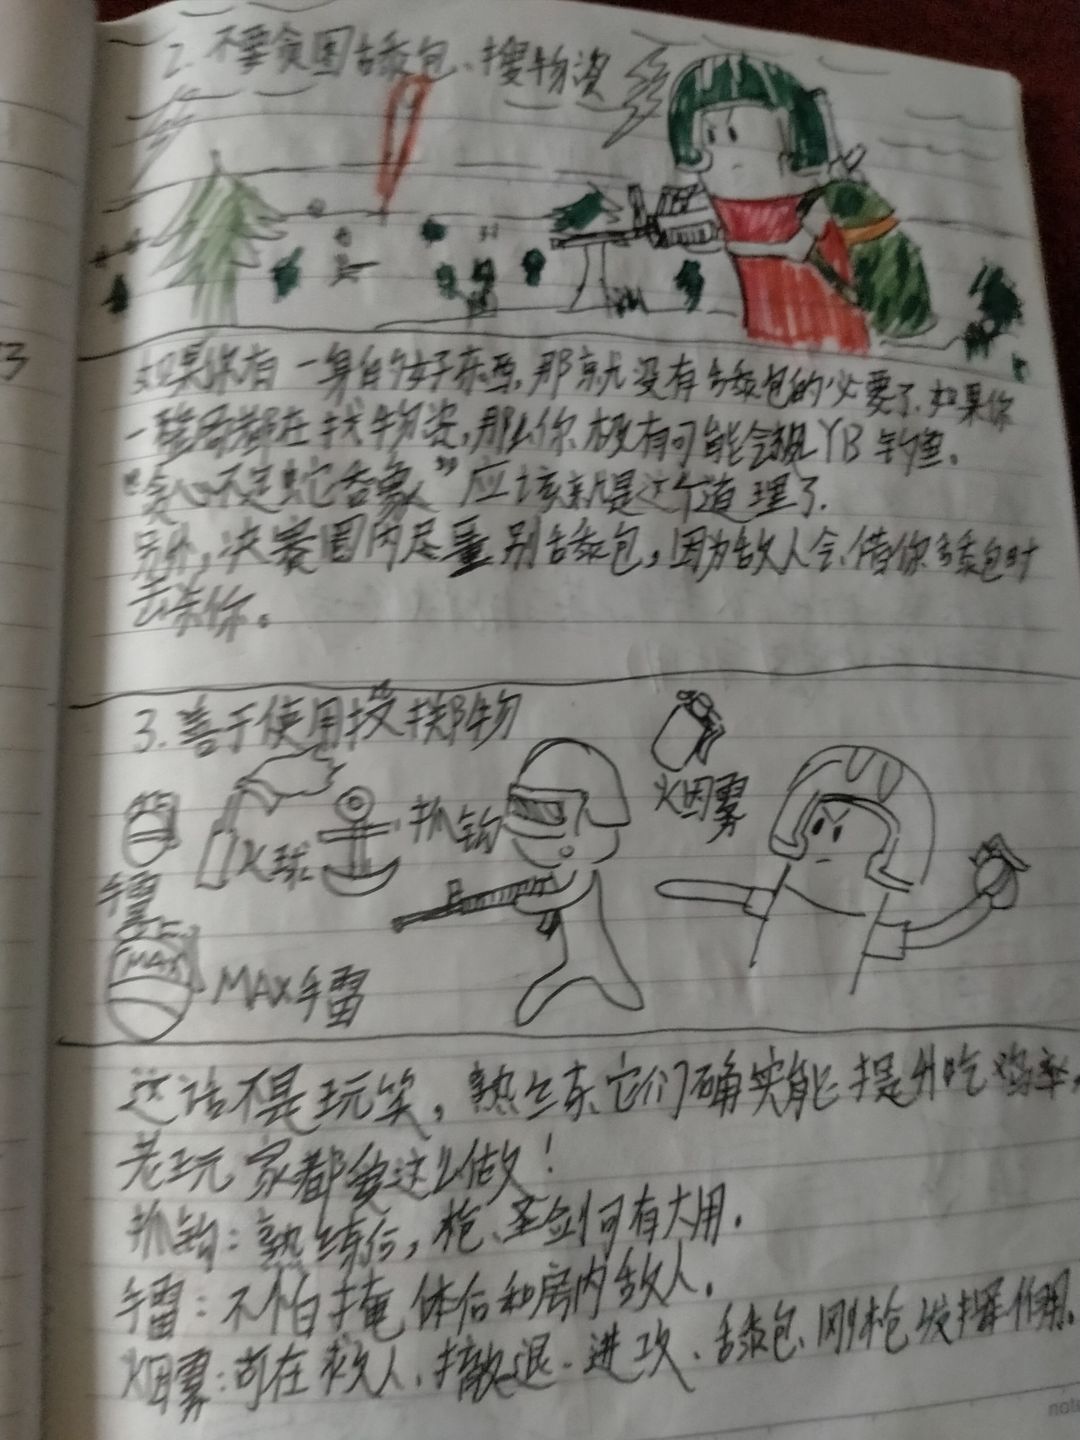 2. 不要贪图舔包、搜物资
如果你有一身的好东西,那就没有舔包的必要了.如果你
一整局都在找物资,那么你极有可能会被LYB钓鱼.
“贪心不足蛇吞象”应该就是这个道理了.
另外,决赛圈内尽量别舔包,因为敌人会借你舔包时
去杀你。
3.善于使用投掷物
火球
抓钩
烟雾
手雷
MAX
MAX手雷
这话不是玩笑,熟练它们确实能提升吃鸡率,
老玩家都要这么做!
抓钩:熟练后,枪、圣剑何有大用.
手雷:不怕掩体后和房内敌人.
烟雾:可在救人、撤退、进攻、舔包、刚枪发挥作用.
note